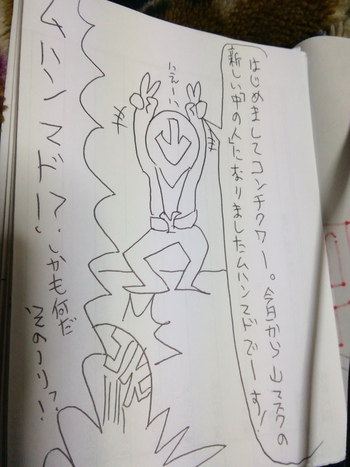 はじめましてコンチクワー。今日から山マスクの
新しい「中の人」になりましたムハンマドでーす!
いえーい
ムハンマドー!?しかも何だ
そのノリっ!!